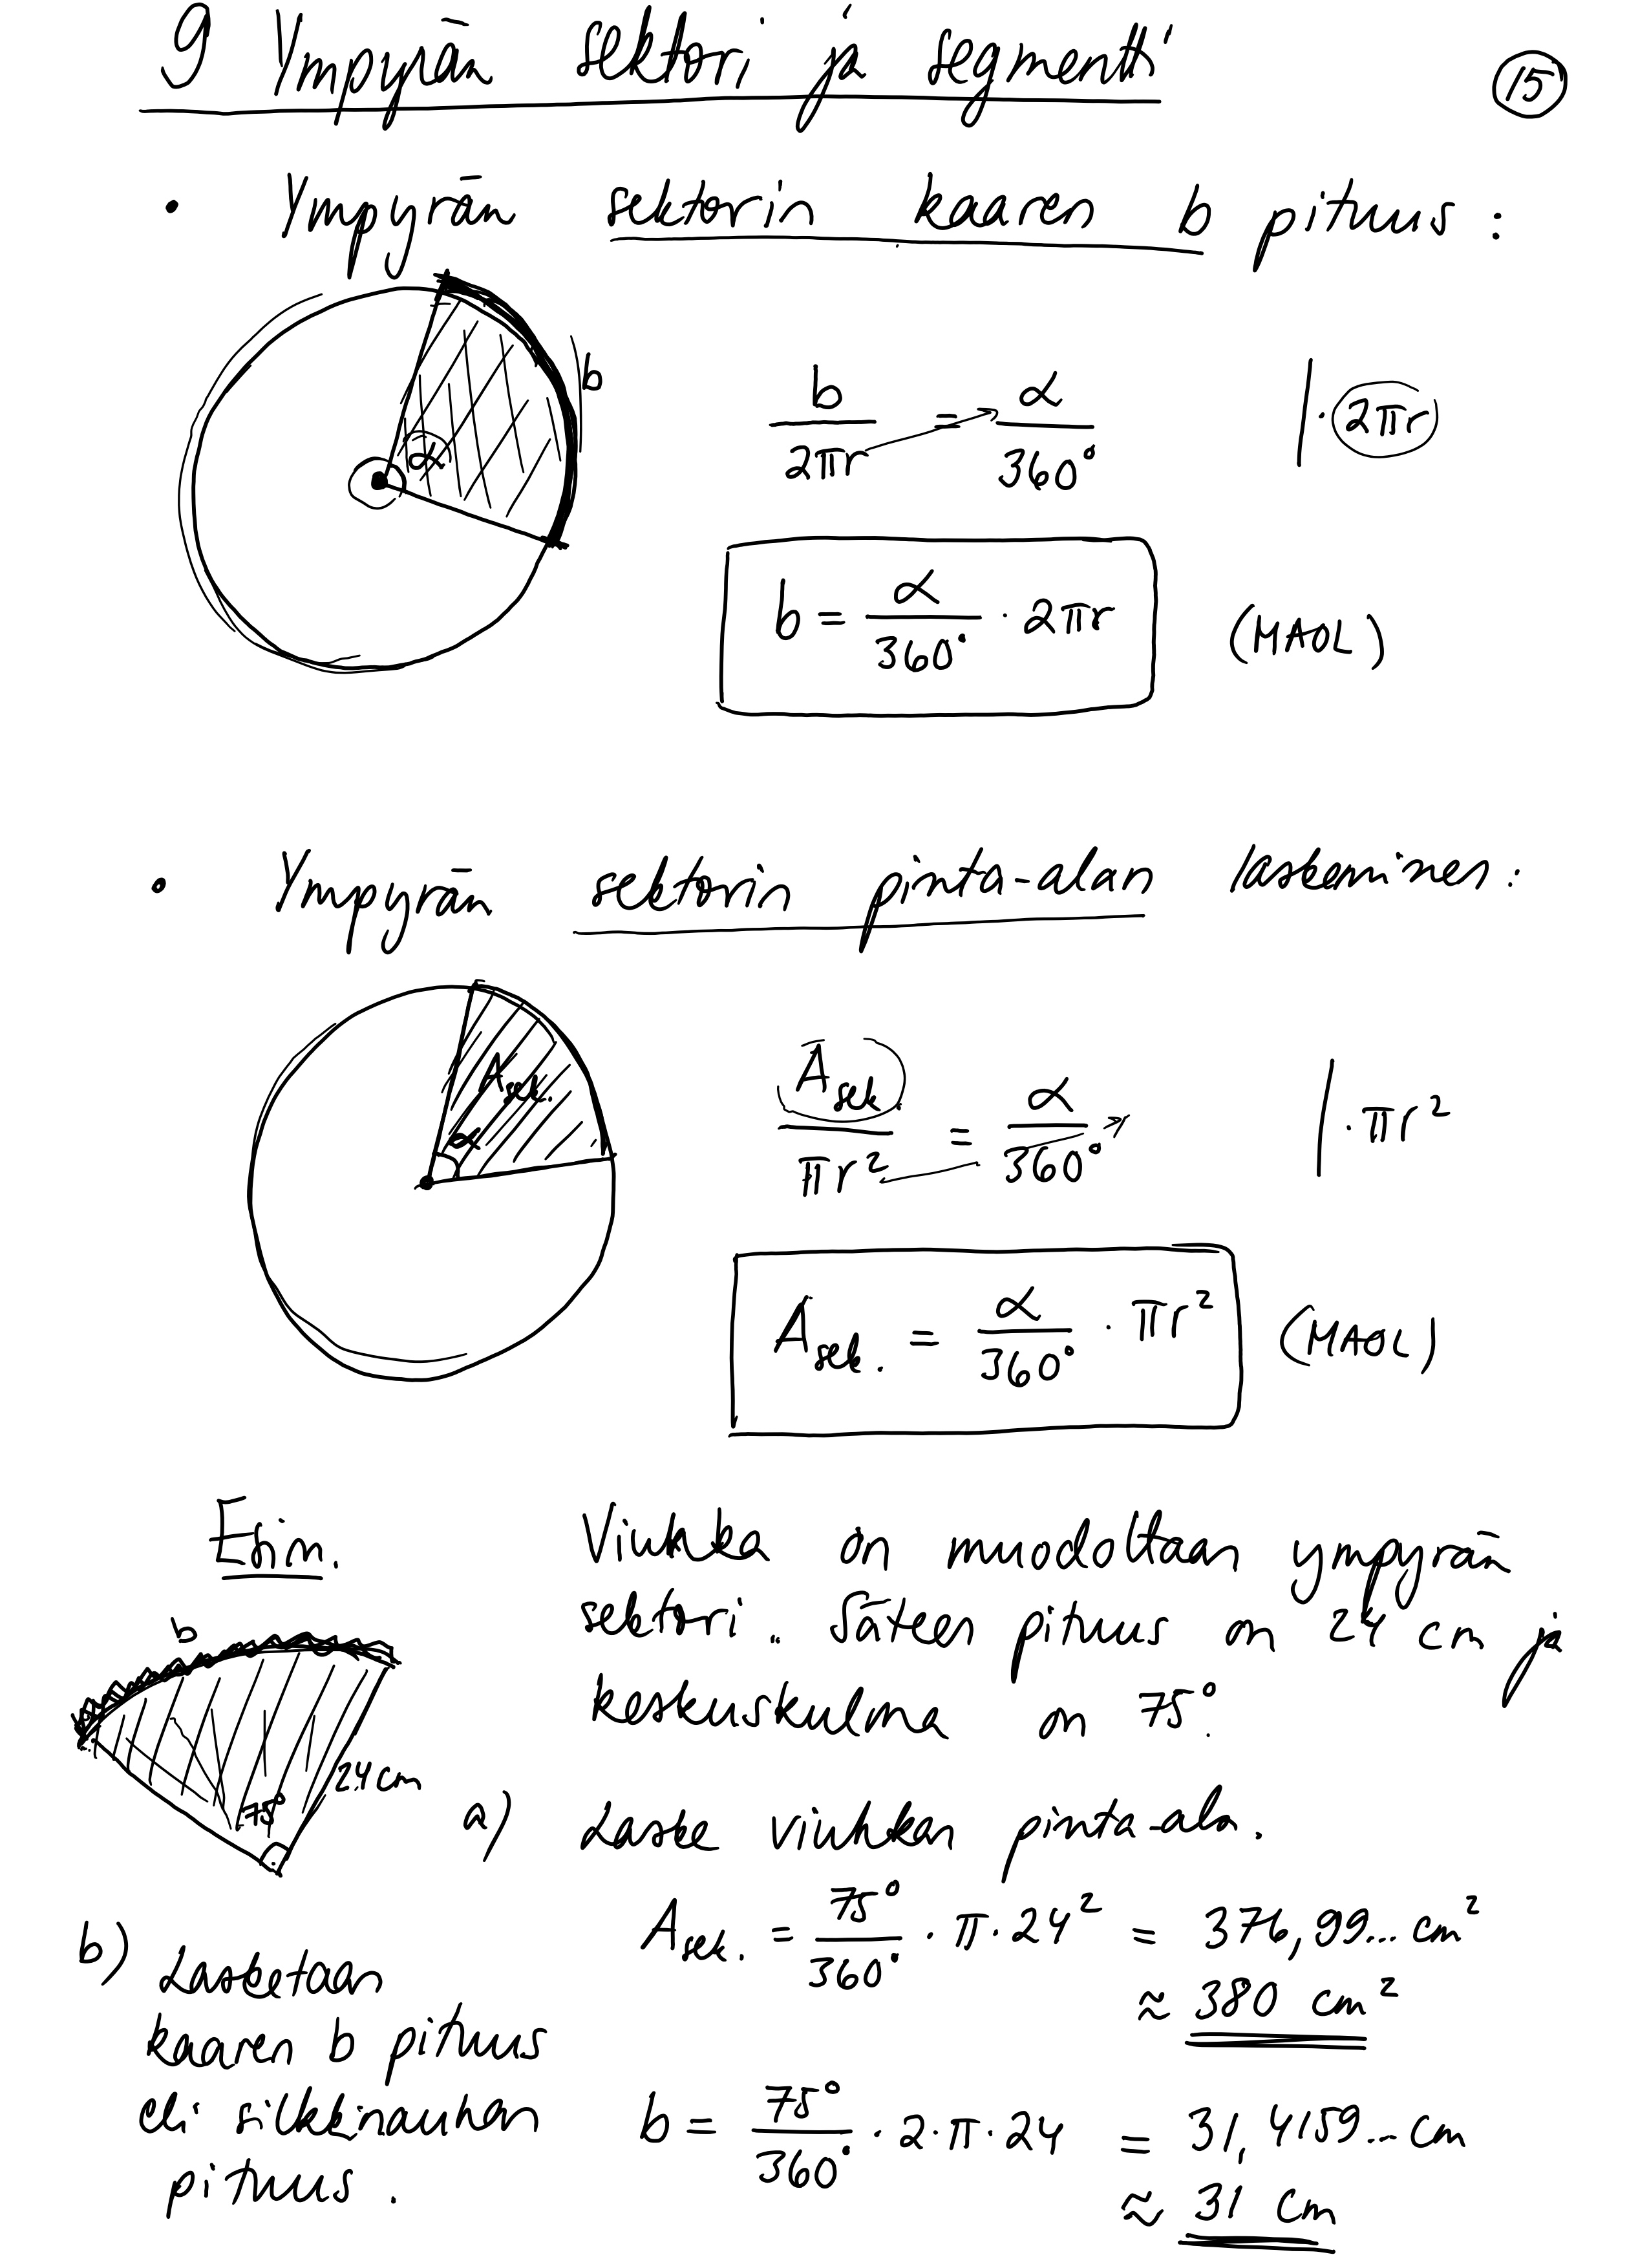 9 Ympyrän sektori ja segmentti
15
• Ympyrän sektorin kaaren b pituus :
b
α
b/2πr = α/360° | · 2πr
b = α/360° · 2πr (MAOL)
• Ympyrän sektorin pinta-alan laskeminen :
A sek.
α
A sek./πr² = α/360° | · πr²
A sek. = α/360° · πr² (MAOL)
Esim. Viuhka on muodoltaan ympyrän
sektori. Säteen pituus on 24 cm ja
keskuskulma on 75°.
b
24 cm
75°
a) Laske viuhkan pinta-ala.
A sek. = 75°/360° · π · 24² = 376,99... cm²
≈ 380 cm²
b) Lasketaan
kaaren b pituus
eli silkkinauhan
pituus.
b = 75°/360° · 2 · π · 24 = 31,4159... cm
≈ 31 cm